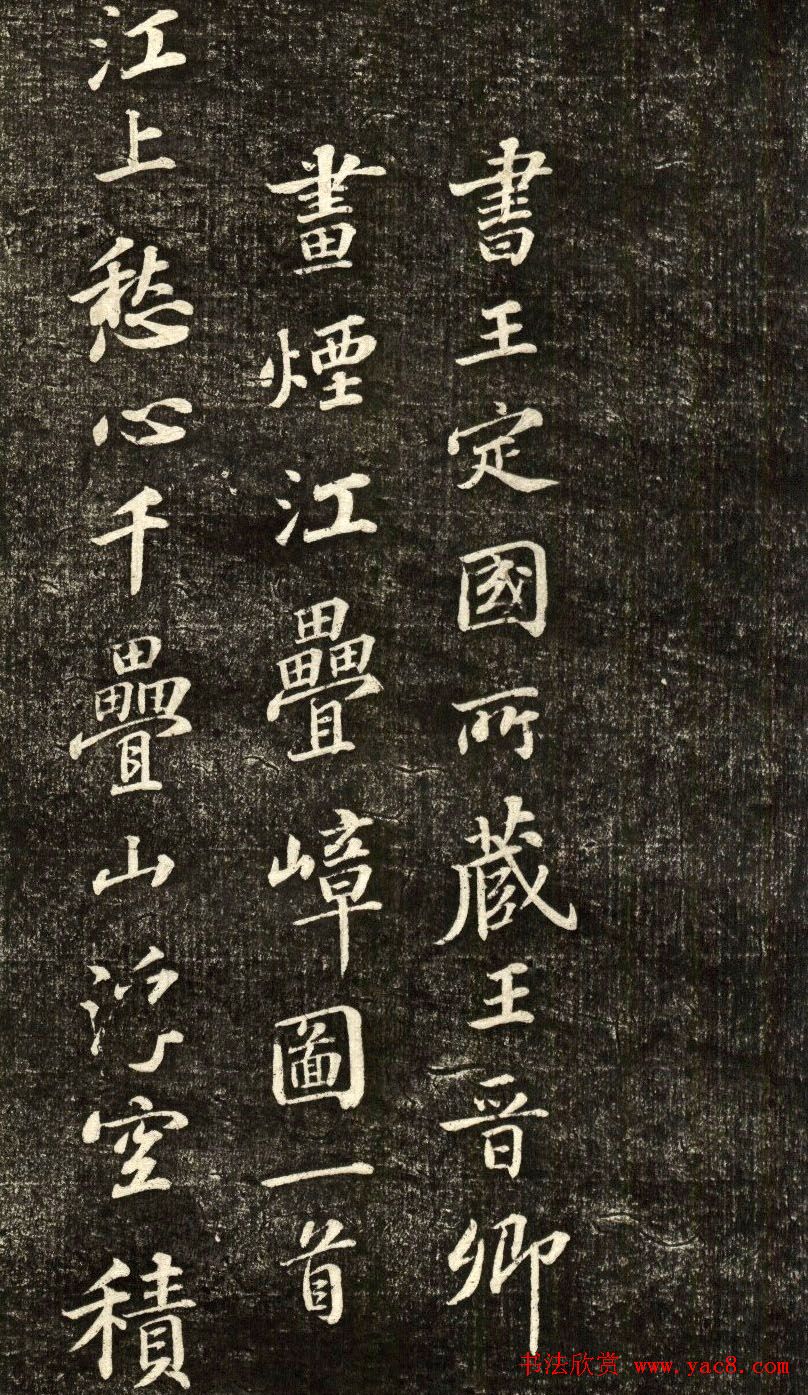 書王定國所蔵王晉卿
畫煙江疊嶂圖一首
江上愁心千疊山浮空積
书法欣赏 www.yac8.com